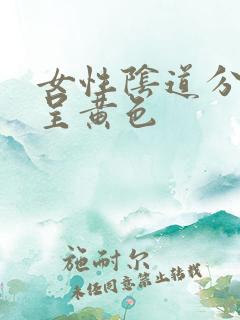 女性陰道分
呈黄色
施耐尔
未经同意禁止转载